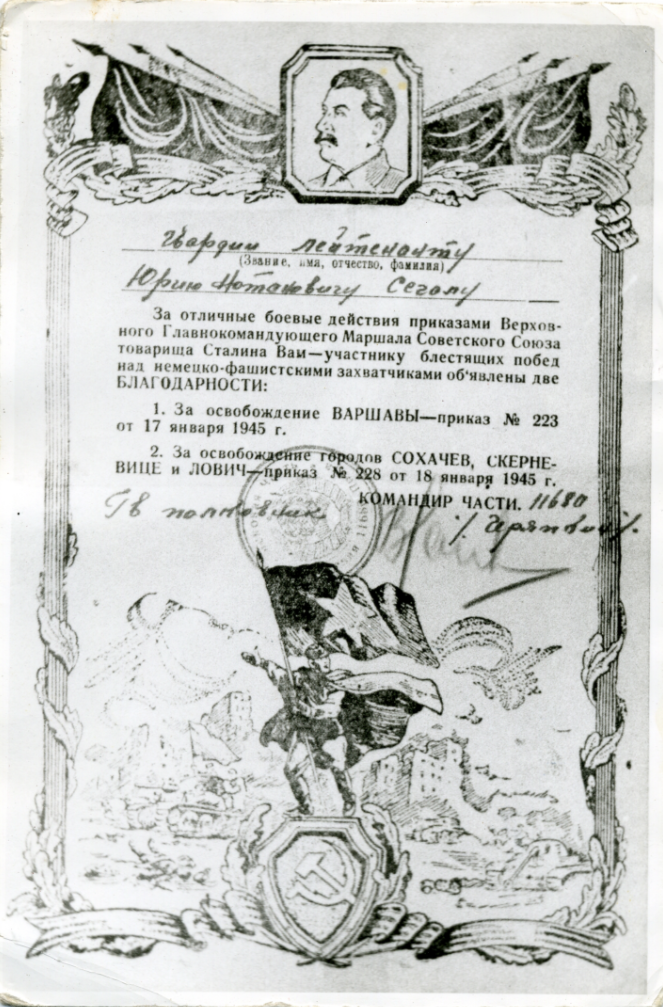 Гвардии лейтенанту
(Звание, имя, отчество, фамилия)
Юрию Натановичу Сегалу
За отличные боевые действия приказами Верхов-
ного Главнокомандующего Маршала Советского Союза
товарища Сталина Вам—участнику блестящих побед
над немецко-фашистскими захватчиками об'явлены две
БЛАГОДАРНОСТИ:
1. За освобождение ВАРШАВЫ—приказ № 223
от 17 января 1945 г.
2. За освобождение городов СОХАЧЕВ, СКЕРНЕ-
ВИЦЕ и ЛОВИЧ—приказ № 228 от 18 января 1945 г.
КОМАНДИР ЧАСТИ. 11680
Гв полковник